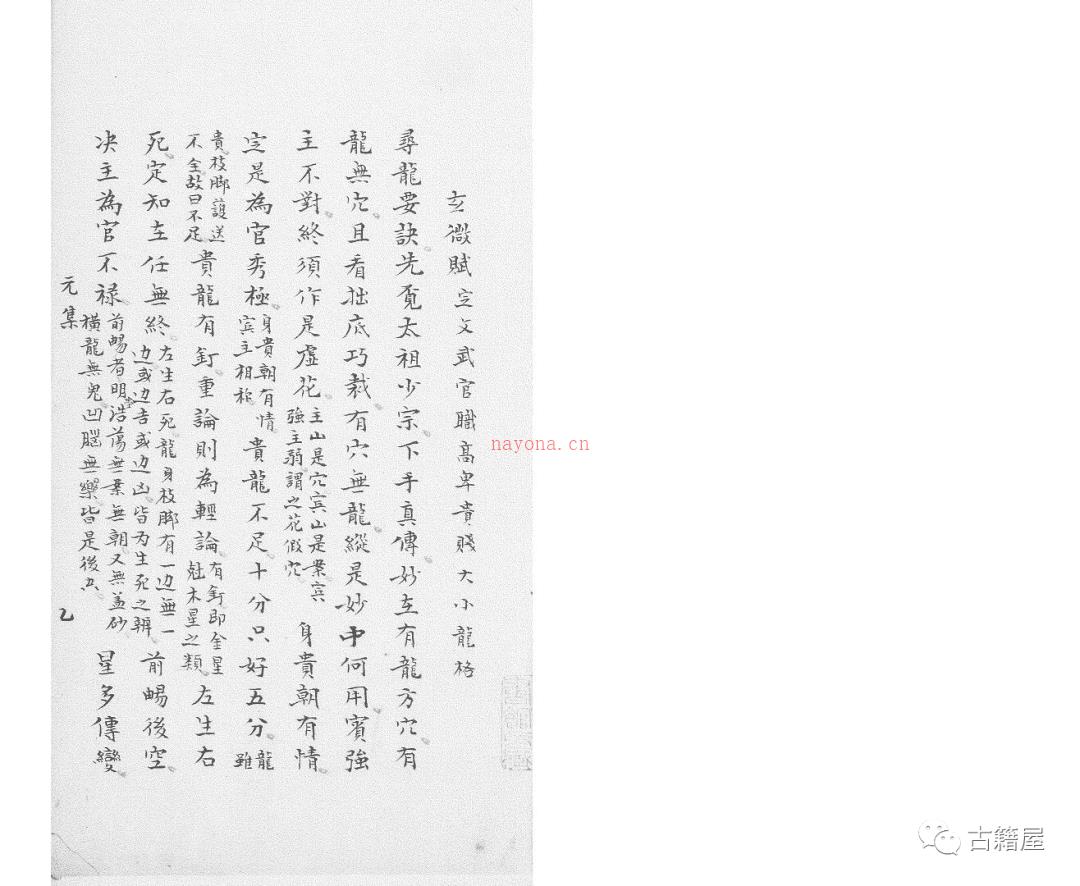 玄微賦 定文武官職高卑貴賤大小龍格
尋龍要訣先覓太祖少宗下手真傳妙在有龍方穴有
龍無穴且看拙底巧裁有穴無龍縱是妙中何用賓強
主不對終須作是虛花主山是穴賓山是案賓強主弱謂之花假穴 身貴朝有情
定是為官秀極身貴朝有情賓主相称貴龍不足十分只好五分龍雖
貴枝脚護送不全故曰不足貴龍有釘重論則為輕論有釘即金星 木星之類左生右
死定知在任無終左生右死龍身枝脚有一边無一边或边吉或边凶皆为生死之辨前暘後空
决主為官不禄前暘者明堂浩蕩無案無朝又無盖砂橫龍無鬼凹腦無樂皆是後空 星多傳變
元集
乙
nayona.cn
古籍屋